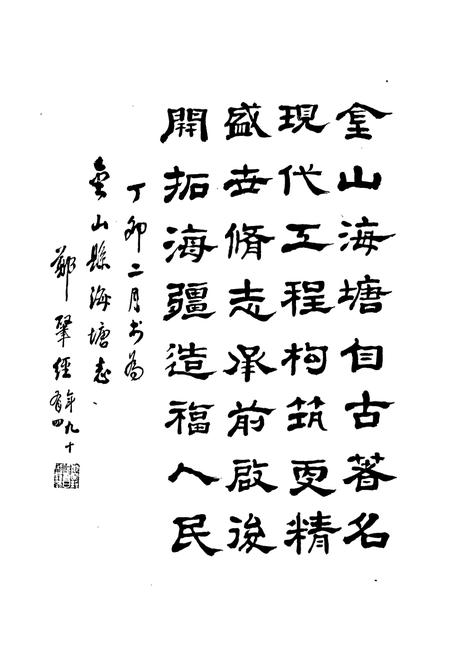 金山海塘自古著名
現代工程构筑更精
盛世脩志承前啟後
開拓海疆造福人民
丁卯二月书為
金山縣海塘志
鄭肇經 年九十有四